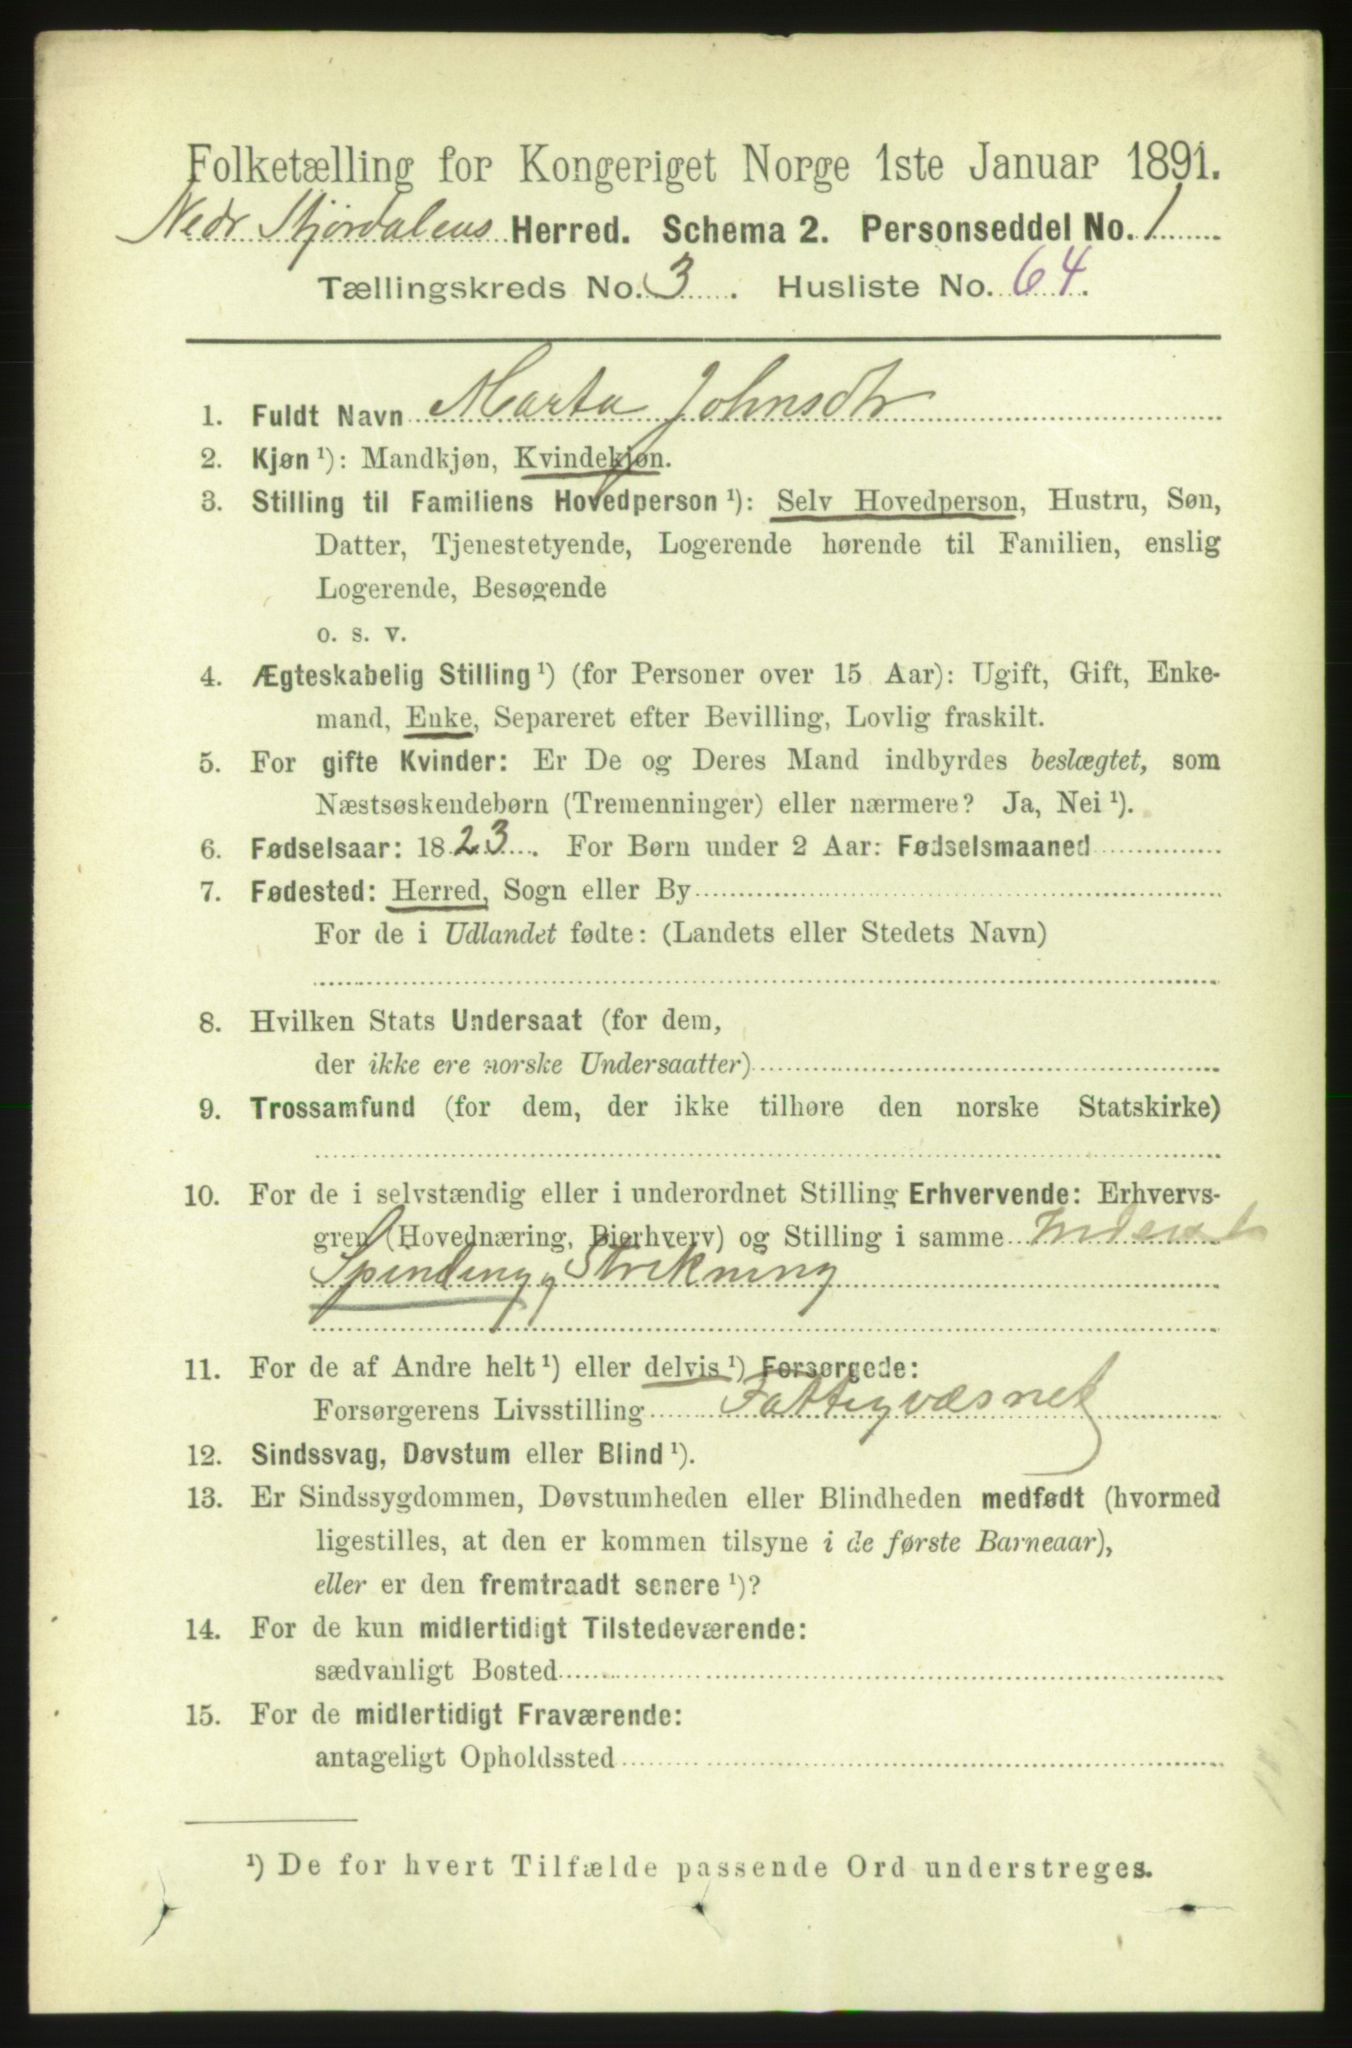 Folketælling for Kongeriget Norge 1ste Januar 1891.
Nedr Stjørdalens Herred. Schema 2. Personseddel No. 1
Tællingskreds No. 3. Husliste No. 64.
1. Fuldt Navn Marta Johnsdtr
2. Kjøn ¹): Mandkjøn, Kvindekjøn.
3. Stilling til Familiens Hovedperson ¹): Selv Hovedperson, Hustru, Søn,
Datter, Tjenestetyende, Logerende hørende til Familien, enslig
Logerende, Besøgende
o. s. v.
4. Ægteskabelig Stilling ¹) (for Personer over 15 Aar): Ugift, Gift, Enke-
mand, Enke, Separeret efter Bevilling, Lovlig fraskilt.
5. For gifte Kvinder: Er De og Deres Mand indbyrdes beslægtet, som
Næstsøskendebørn (Tremenninger) eller nærmere? Ja, Nei ¹).
6. Fødselsaar: 1823. For Børn under 2 Aar: Fødselsmaaned
7. Fødested: Herred, Sogn eller By
For de i Udlandet fødte: (Landets eller Stedets Navn)
8. Hvilken Stats Undersaat (for dem,
der ikke ere norske Undersaatter)
9. Trossamfund (for dem, der ikke tilhøre den norske Statskirke)
10. For de i selvstændig eller i underordnet Stilling Erhvervende: Erhvervs-
gren (Hovednæring, Bierhverv) og Stilling i samme
Spinding Strikning
11. For de af Andre helt ¹) eller delvis ¹) Forsørgede:
Forsørgerens Livsstilling Fattigvæsnet
12. Sindssvag, Døvstum eller Blind ¹).
13. Er Sindssygdommen, Døvstumheden eller Blindheden medfødt (hvormed
ligestilles, at den er kommen tilsyne i de første Barneaar),
eller er den fremtraadt senere ¹)?
14. For de kun midlertidigt Tilstedeværende:
sædvanligt Bosted
15. For de midlertidigt Fraværende:
antageligt Opholdssted
¹) De for hvert Tilfælde passende Ord understreges.